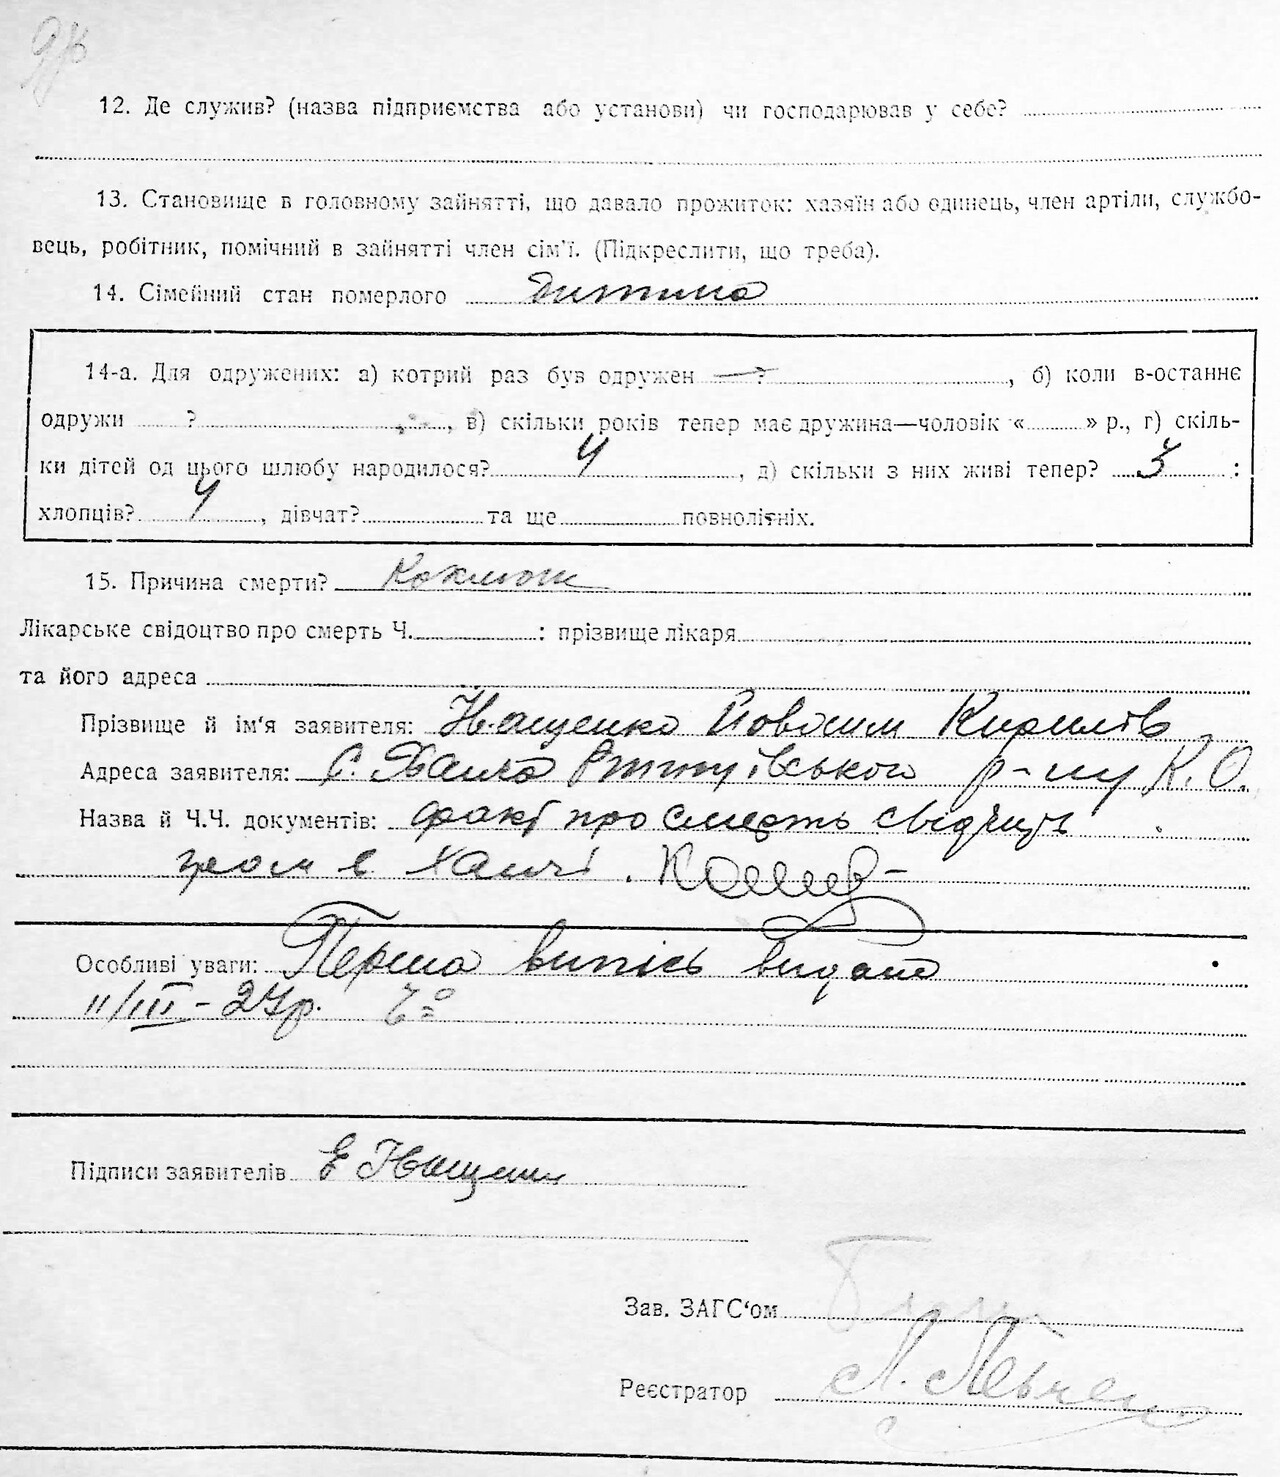 12. Де служив? (назва підприємства або установи) чи господарював у себе?
13. Становище в головному зайнятті, що давало прожиток: хазяїн або одинець, член артіли, службо-
вець, робітник, помічний в зайнятті член сім'ї. (Підкреслити, що треба).
14. Сімейний стан померлого Дитина
14-а. Для одружених: а) котрий раз був одружен —?, б) коли в-останнє
одружи ?, в) скільки років тепер має дружина—чоловік «» р., г) скіль-
ки дітей од цього шлюбу народилося? 4, д) скільки з них живі тепер? 3 :
хлопців? 4, дівчат? та ще повнолітніх.
15. Причина смерти? Коклюш
Лікарське свідоцтво про смерть Ч. : прізвище лікаря
та його адреса
Прізвище й ім'я заявителя: Іващенко Йовхим Кирилів
Адреса заявителя: с. Ханча р-ну К.О.
Назва й Ч.Ч. документів: факт про смерть свідчить
гром в Ханчі.
Особливі уваги: Перша випись видана
11/III - 27р.
Підписи заявителів Е Іващенк
Зав. ЗАГС'ом
Реєстратор Л.